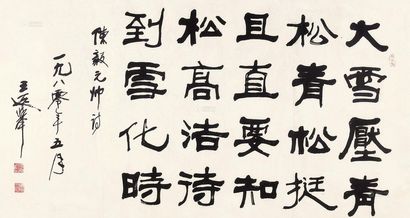 大雪壓青
松青松挺
且直要知
松高洁待
到雪化時
陳毅元帅诗
一九八零年五月
王遐举